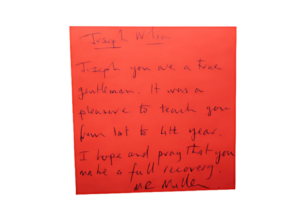 Joseph Wilson
Joseph you are a true
gentleman. It was a
pleasure to teach you
from 1st to 4th year.
I hope and pray that you
make a full recovery.
MR